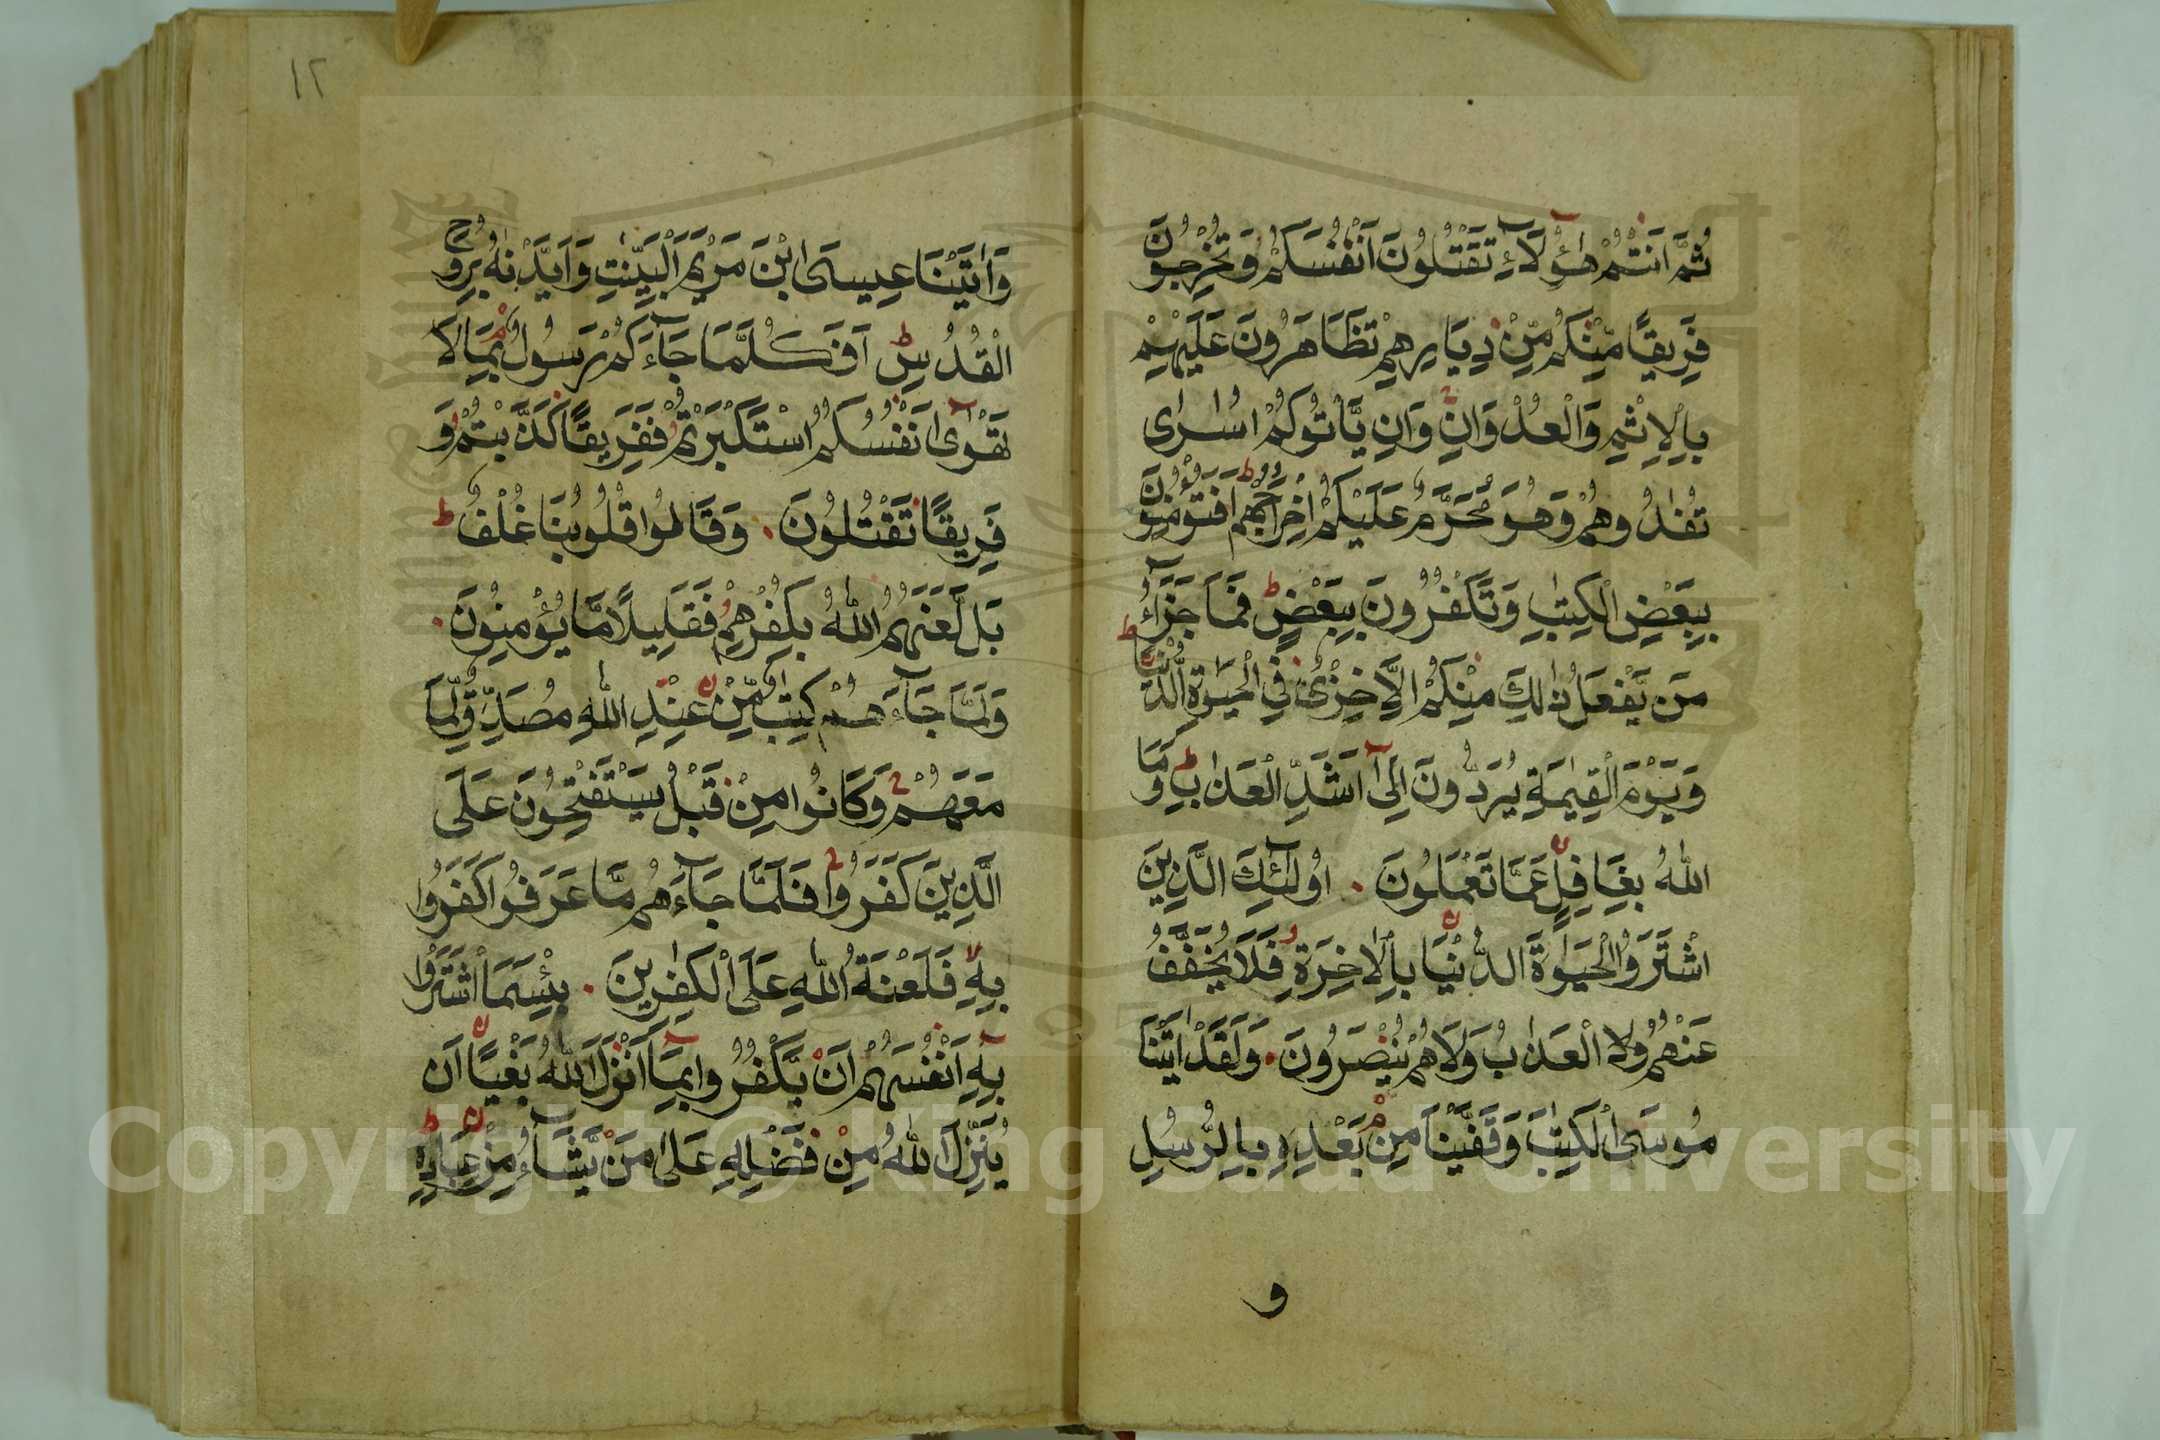 ثُمَّ اَنْتُمْ هٰٓؤُلَآءِ تَقْتُلُونَ اَنْفُسَكُمْ وَتُخْرِجُونَ
فَرِيقًا مِّنْكُمْ مِّنْ دِيَارِهِمْ تَظَاهَرُونَ عَلَيْهِمْ
بِالْاِثْمِ وَالْعُدْوَانِ وَاِنْ يَّأْتُوكُمْ اُسٰرٰى
تُفٰدُوهُمْ وَهُوَ مُحَرَّمٌ عَلَيْكُمْ اِخْرَاجُهُمْ اَفَتُؤْمِنُونَ
بِبَعْضِ الْكِتٰبِ وَتَكْفُرُونَ بِبَعْضٍ ط فَمَا جَزَآءُ
مَنْ يَّفْعَلُ ذٰلِكَ مِنْكُمْ اِلَّا خِزْىٌ فِى الْحَيٰوةِ الدُّنْيَا ط
وَيَوْمَ الْقِيٰمَةِ يُرَدُّونَ اِلٰٓى اَشَدِّ الْعَذَابِ ط وَمَا
اللّٰهُ بِغَافِلٍ عَمَّا تَعْمَلُونَ . اُولٰٓئِكَ الَّذِينَ
اشْتَرَوُا الْحَيٰوةَ الدُّنْيَا بِالْاٰخِرَةِ فَلَا يُخَفَّفُ
عَنْهُمُ الْعَذَابُ وَلَا هُمْ يُنْصَرُونَ . وَلَقَدْ اٰتَيْنَا
مُوسَى الْكِتٰبَ وَقَفَّيْنَا مِنْ بَعْدِهٖ بِالرُّسُلِ
و
١٢
وَاٰتَيْنَا عِيسَى ابْنَ مَرْيَمَ الْبَيِّنٰتِ وَاَيَّدْنٰهُ بِرُوحِ
الْقُدُسِ ط اَفَكُلَّمَا جَآءَكُمْ رَسُولٌ بِمَا لَا
تَهْوٰٓى اَنْفُسُكُمُ اسْتَكْبَرْتُمْ فَفَرِيقًا كَذَّبْتُمْ وَ
فَرِيقًا تَقْتُلُونَ . وَقَالُوا قُلُوبُنَا غُلْفٌ ط
بَل لَّعَنَهُمُ اللّٰهُ بِكُفْرِهِمْ فَقَلِيلًا مَّا يُؤْمِنُونَ .
وَلَمَّا جَآءَهُمْ كِتٰبٌ مِّنْ عِنْدِ اللّٰهِ مُصَدِّقٌ لِّمَا
مَعَهُمْ وَكَانُوا مِنْ قَبْلُ يَسْتَفْتِحُونَ عَلَى
الَّذِينَ كَفَرُوا فَلَمَّا جَآءَهُمْ مَّا عَرَفُوا كَفَرُوا
بِهٖ فَلَعْنَةُ اللّٰهِ عَلَى الْكٰفِرِينَ . بِئْسَمَا اشْتَرَوْا
بِهٖٓ اَنْفُسَهُمْ اَنْ يَّكْفُرُوا بِمَآ اَنْزَلَ اللّٰهُ بَغْيًا اَنْ
يُنَزِّلَ اللّٰهُ مِنْ فَضْلِهٖ عَلٰى مَنْ يَّشَآءُ مِنْ عِبَادِهٖ ط
Copyright © King Saud University